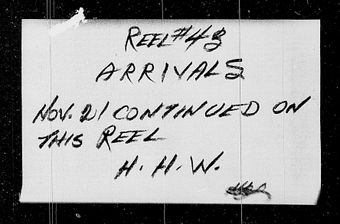 REEL #43
ARRIVALS
NOV. 21 CONTINUED ON
THIS REEL
H. H. W.